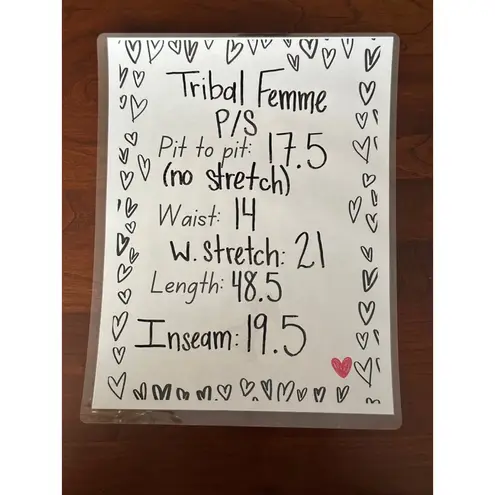 Tribal Femme
P/S
Pit to pit: 17.5
(no stretch)
Waist: 14
W. stretch: 21
Length: 48.5
Inseam: 19.5